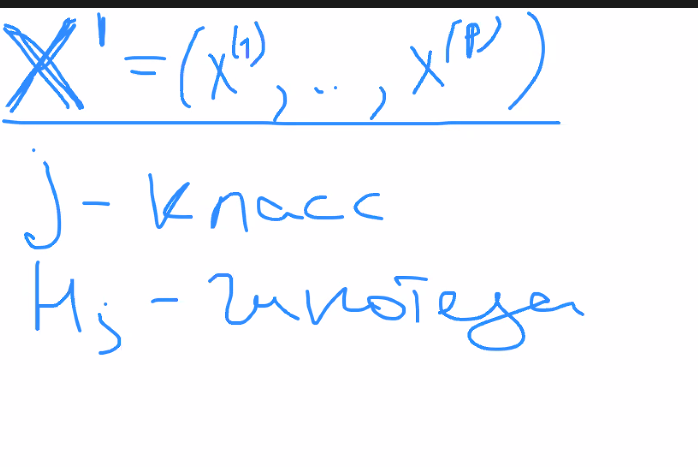 X' = (x^(1), .., x^(p))
j – класс
H_j – гипотеза